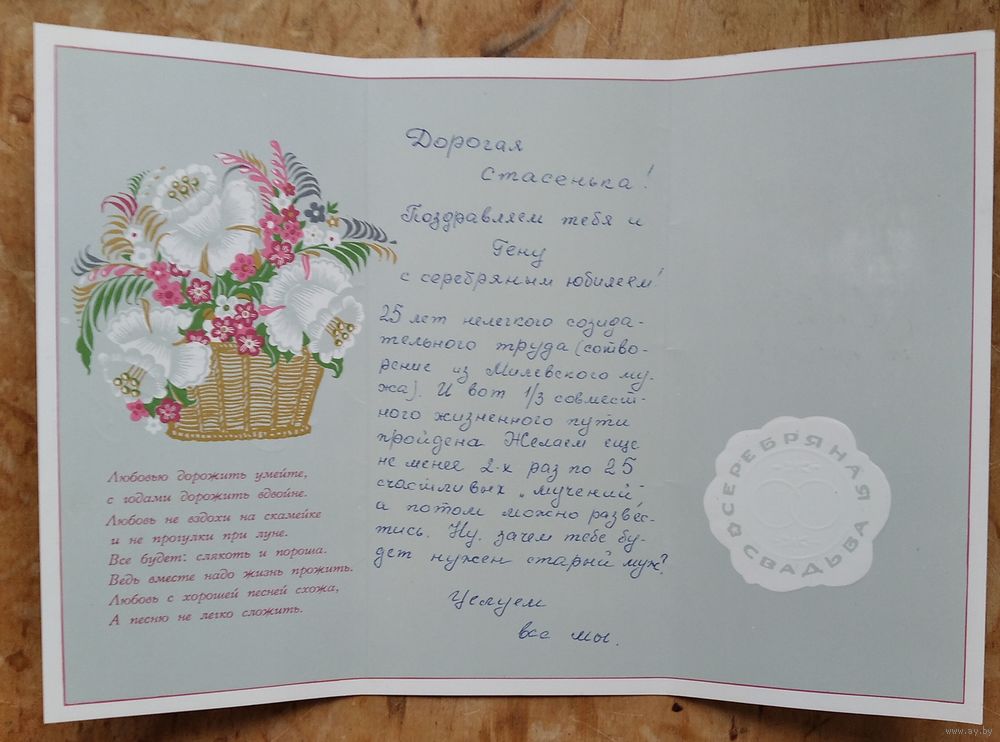 Любовью дорожить умейте,
с годами дорожить вдвойне.
Любовь не вздохи на скамейке
и не прогулки при луне.
Все будет: слякоть и пороша.
Ведь вместе надо жизнь прожить.
Любовь с хорошей песней схожа,
А песню не легко сложить.
Дорогая
Стасенька!
Поздравляем тебя и
Гену
с серебряным юбилеем!
25 лет нелегкого созида-
тельного труда (сотво-
рение из Милевского му-
жа). И вот 1/3 совмест-
ного жизненного пути
пройдена Желаем еще
не менее 2-х раз по 25
счастливых „мучений",
а потом можно развес-
тись. Ну, зачем тебе бу-
дет нужен старый муж?
Целуем
все мы.
СЕРЕБРЯНАЯ
СВАДЬБА
www.ay.by